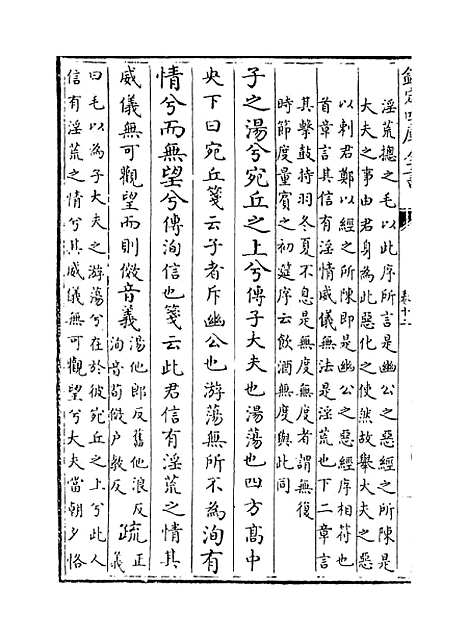 欽定四庫全書
卷十二
淫荒總之毛以此序所言是幽公之惡經之所陳是
大夫之事由君身為此惡化之使然故舉大夫之惡
以刺君鄭以經之所陳即是幽公之惡經序相符也
首章言其信有淫情威儀無法是淫荒也下二章言
其擊鼓持羽冬夏不息是無度無度者謂無復
時節度量賓之初筵序云飲酒無度與此同
子之湯兮宛丘之上兮傳子大夫也湯蕩也四方高中
央下曰宛丘箋云子者斥幽公也游蕩無所不為洵有
情兮而無望兮傳洵信也箋云此君信有淫荒之情其
威儀無可觀望而則傚音義湯他郎反舊他浪反
洵音荀傚户教反疏正
義
曰毛以為子大夫之游蕩兮在於彼宛丘之上兮此人
信有淫荒之情兮其威儀無可觀望兮大夫當朝夕恪